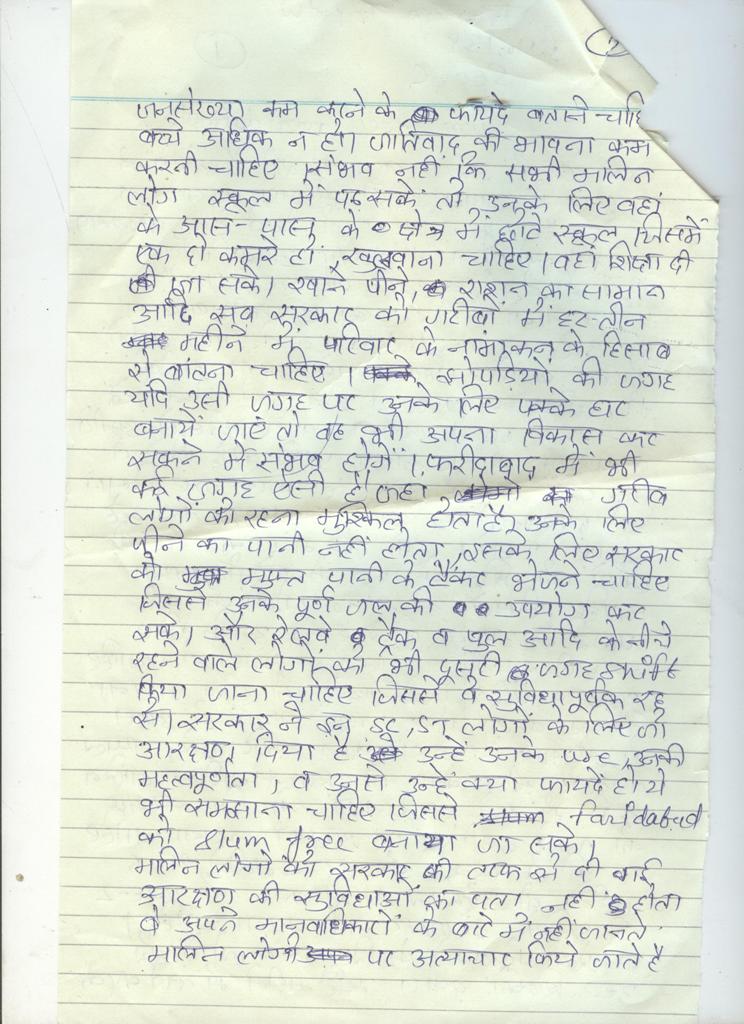 2
जनसंख्या कम करने के फायदे बताने चाहि
बच्चे अधिक न हो। जातिवाद की भावना कम
करनी चाहिए। संभव नहीं कि सभी मलिन
लोग स्कूल में पढ़ सकें तो उनके लिए वहां
के आस-पास के क्षेत्र में छोटे स्कूल जिसमें
एक दो कमरे हों, खुलवाना चाहिए। वहां शिक्षा दी
जा सके। खाने पीने, राशन का सामान
आदि सब सरकार को गरीबों में हर-तीन
महीने में परिवार के नामांकन के हिसाब
से बांटना चाहिए। झोपड़ियों की जगह
यदि उसी जगह पर उनके लिए पक्के घर
बनायें जाएं तो वह भी अपना विकास कर
सकने में संभव होगें। फरीदाबाद में भी
कई जगह ऐसी है जहां गरीब
लोगों का रहना मुश्किल होता है, उनके लिए
पीने का पानी नहीं होता, इसके लिए सरकार
को मुफ्त पानी के टैंकर भेजने चाहिए
जिससे उनके पूर्ण जल की उपयोग कर
सके। और रेलवे ट्रैक व पुल आदि के नीचे
रहने वाले लोगों को भी दूसरी जगह shift
किया जाना चाहिए जिससे वे सुविधापूर्वक रह
सें। सरकार ने इन SC, ST लोगों के लिए जो
आरक्षण दिया है उन्हें उनके use, उनकी
महत्वपूर्णता, व उनसे उन्हें क्या फायदें हो ये
भी समझाना चाहिए जिससे faridabad
को slum free बनाया जा सके।
मलिन लोगों को सरकार की तरफ से दी गई
आरक्षण की सुविधाओं का पता नहीं होता
वे अपने मानवाधिकारों के बारे में नहीं जानते
मलिन लोगों पर अत्याचार किये जाते है